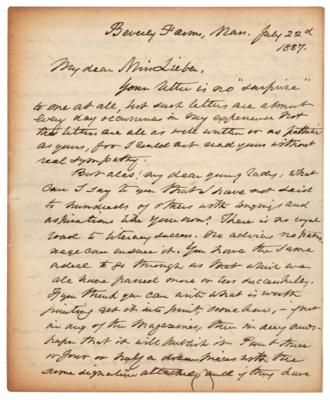 Beverly Farms, Mass. July 22d
1887.
My dear Miss Lieber,
Your letter is no "surprise"
to one at all, but such letters are almost
every day occurrences in my experience not
the letters are all as well written or as pathetic
as yours, for I could not read yours without
real sympathy.
But alas! my dear young lady, what
can I say to you that I have not said
to hundreds of others with longings and
aspirations like your own? There is no royal
road to literary success. No advice no patron-
nage can ensure it. You have the same
ordeal to go through as that which we
all have passed more or less successfully.
If you think you can write what is worth
printing get it into print, somehow, – just
in any of the Magazines, then in any news-
paper that will publish it. Print three
or four or half a dozen pieces with the
same signature attached, and if they have